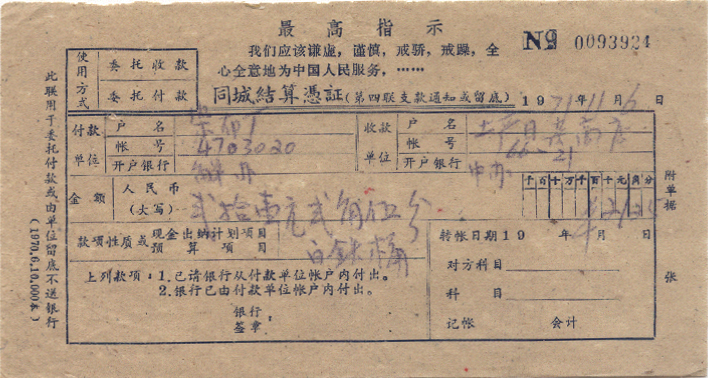 最高指示
我们应该谦虚，谨慎，戒骄，戒躁，全
心全意地为中国人民服务，……
№ 0093924
使用方式
委托收款
委托付款
同城结算凭证(第四联支款通知或留底) 1971年11月6日
付款单位
户名
帐号 4703020
开户银行
收款单位
户名 土产日杂商店
帐号 66-21
开户银行
金额
人民币
(大写) 弍拾壹元弍角伍分
千百十万千百十元角分
¥2125
款项性质或现金出纳计划项目
白鉄桶
上列款项：1.已请银行从付款单位帐户内付出。
2.银行已由付款单位帐户内付出。
银行：
签章：
转帐日期19 年 月 日
对方科目
科目
记帐 会计
附单据 张
此联用于委托付款或由单位留底不送银行
(1970.6.10.000本)